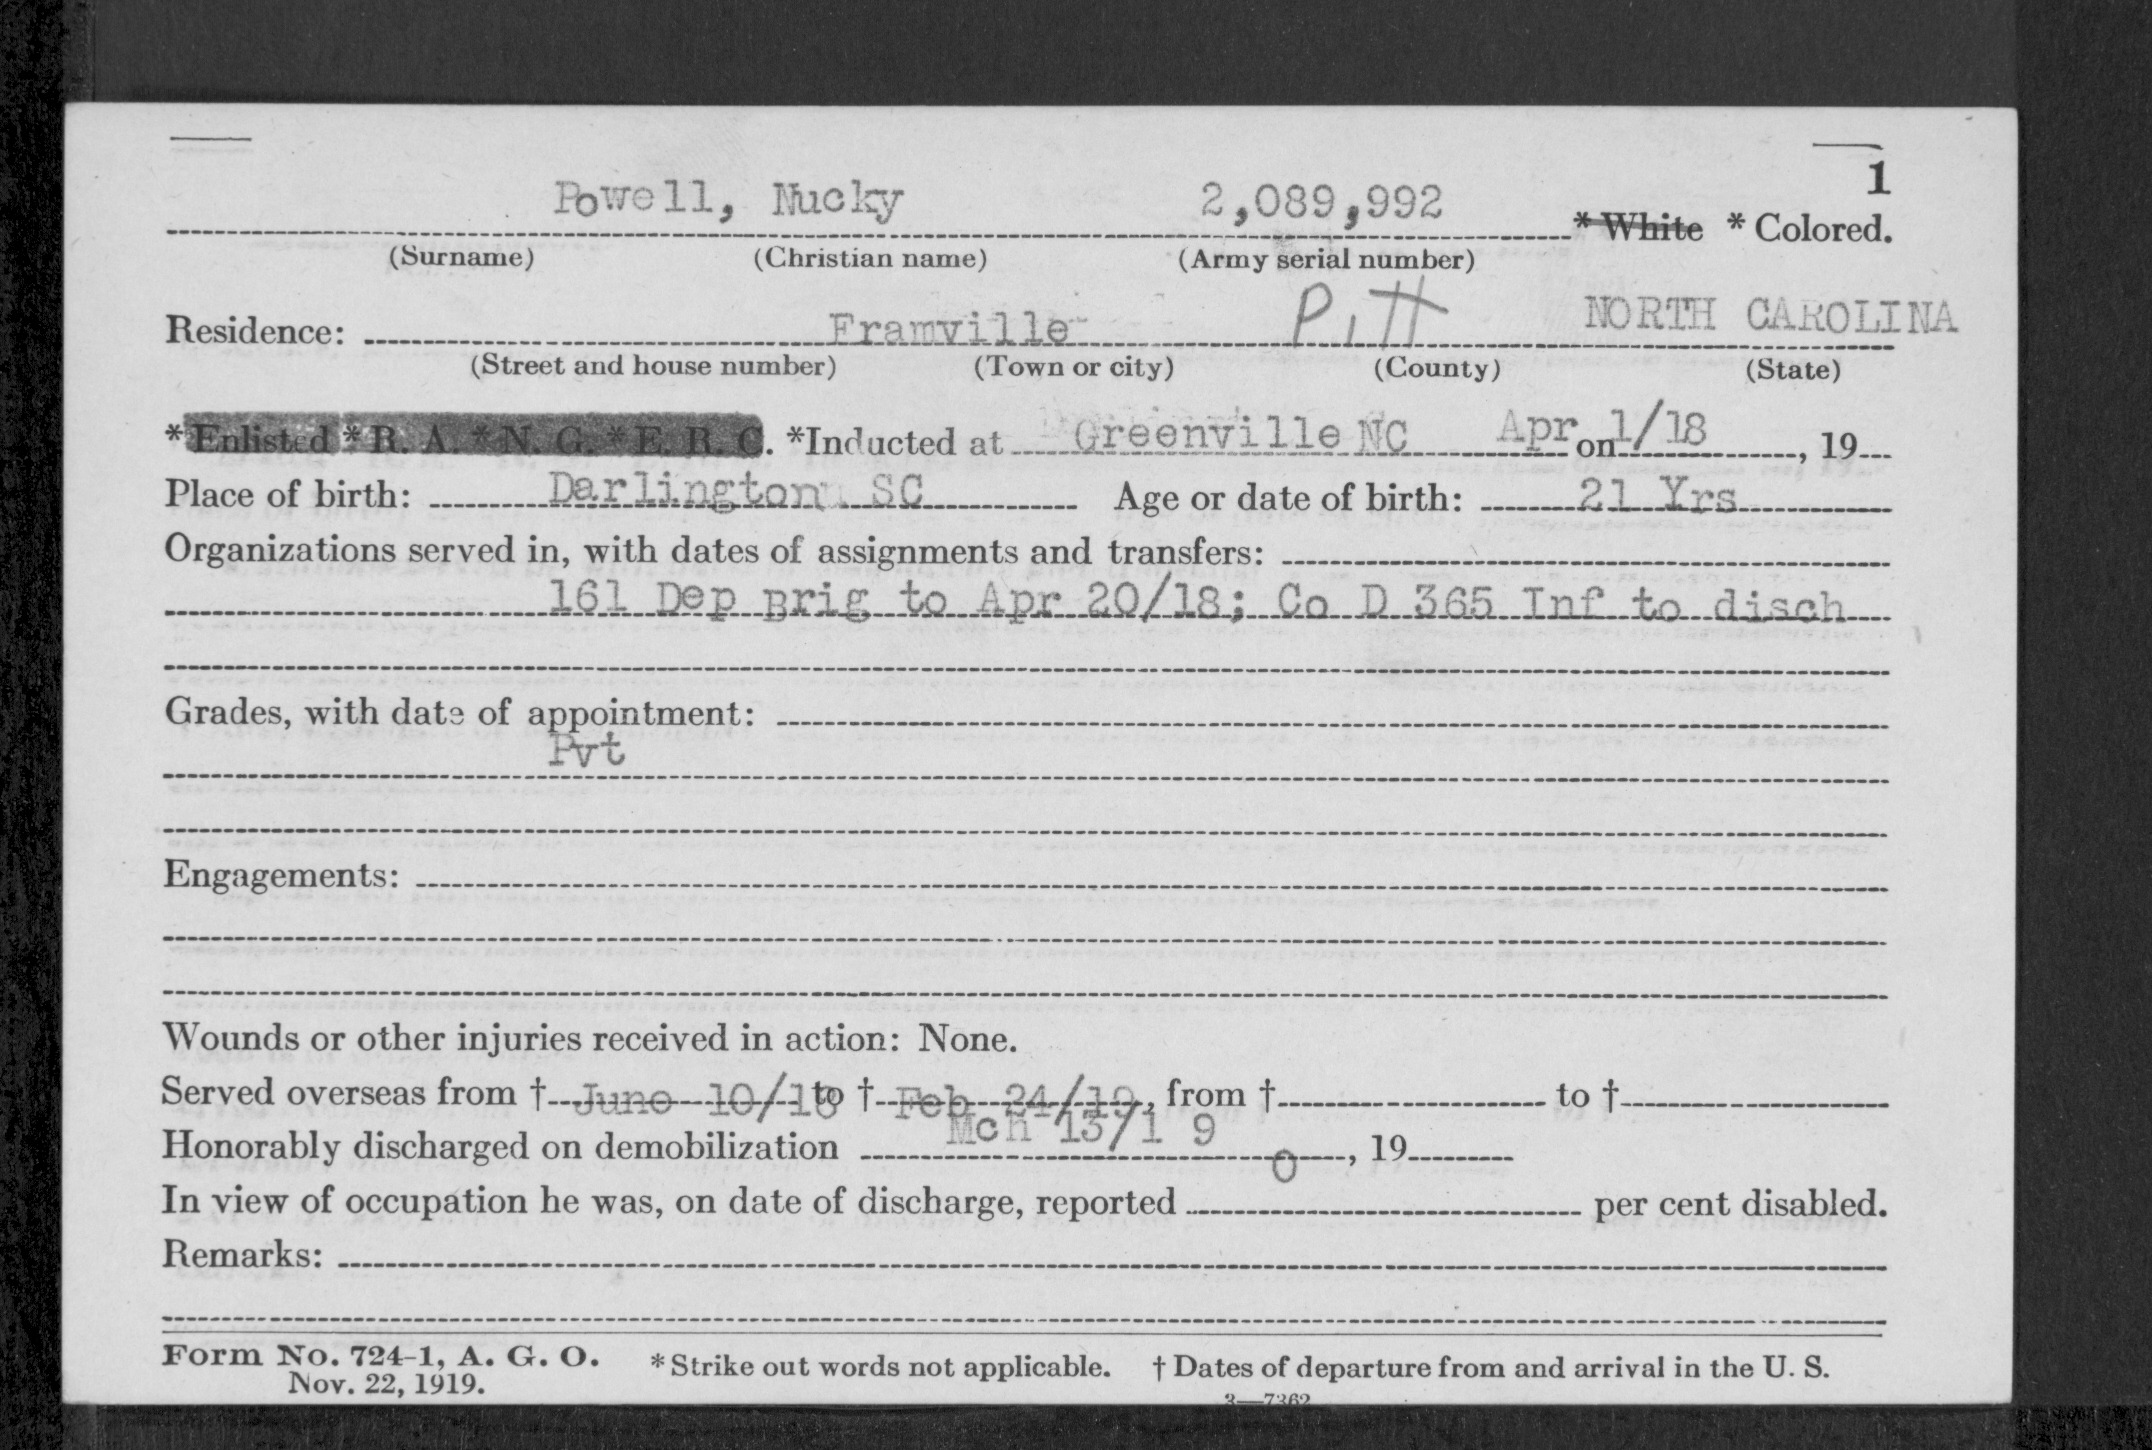 1
Powell, Nucky 2,089,992 * White * Colored.
(Surname) (Christian name) (Army serial number)
Residence: Framville Pitt NORTH CAROLINA
(Street and house number) (Town or city) (County) (State)
* Enlisted * R. A. * N. G. * E. R. C. *Inducted at Greenville NC Apr on 1/18, 19
Place of birth: Darlington SC Age or date of birth: 21 Yrs
Organizations served in, with dates of assignments and transfers:
161 Dep Brig to Apr 20/18; Co D 365 Inf to disch
Grades, with date of appointment:
Pvt
Engagements:
Wounds or other injuries received in action: None.
Served overseas from † June 10/18 to † Feb 24/19, from † to †
Honorably discharged on demobilization Mch 13/1 9, 19
In view of occupation he was, on date of discharge, reported 0 per cent disabled.
Remarks:
Form No. 724-1, A. G. O. * Strike out words not applicable. † Dates of departure from and arrival in the U. S.
Nov. 22, 1919.
3—7362